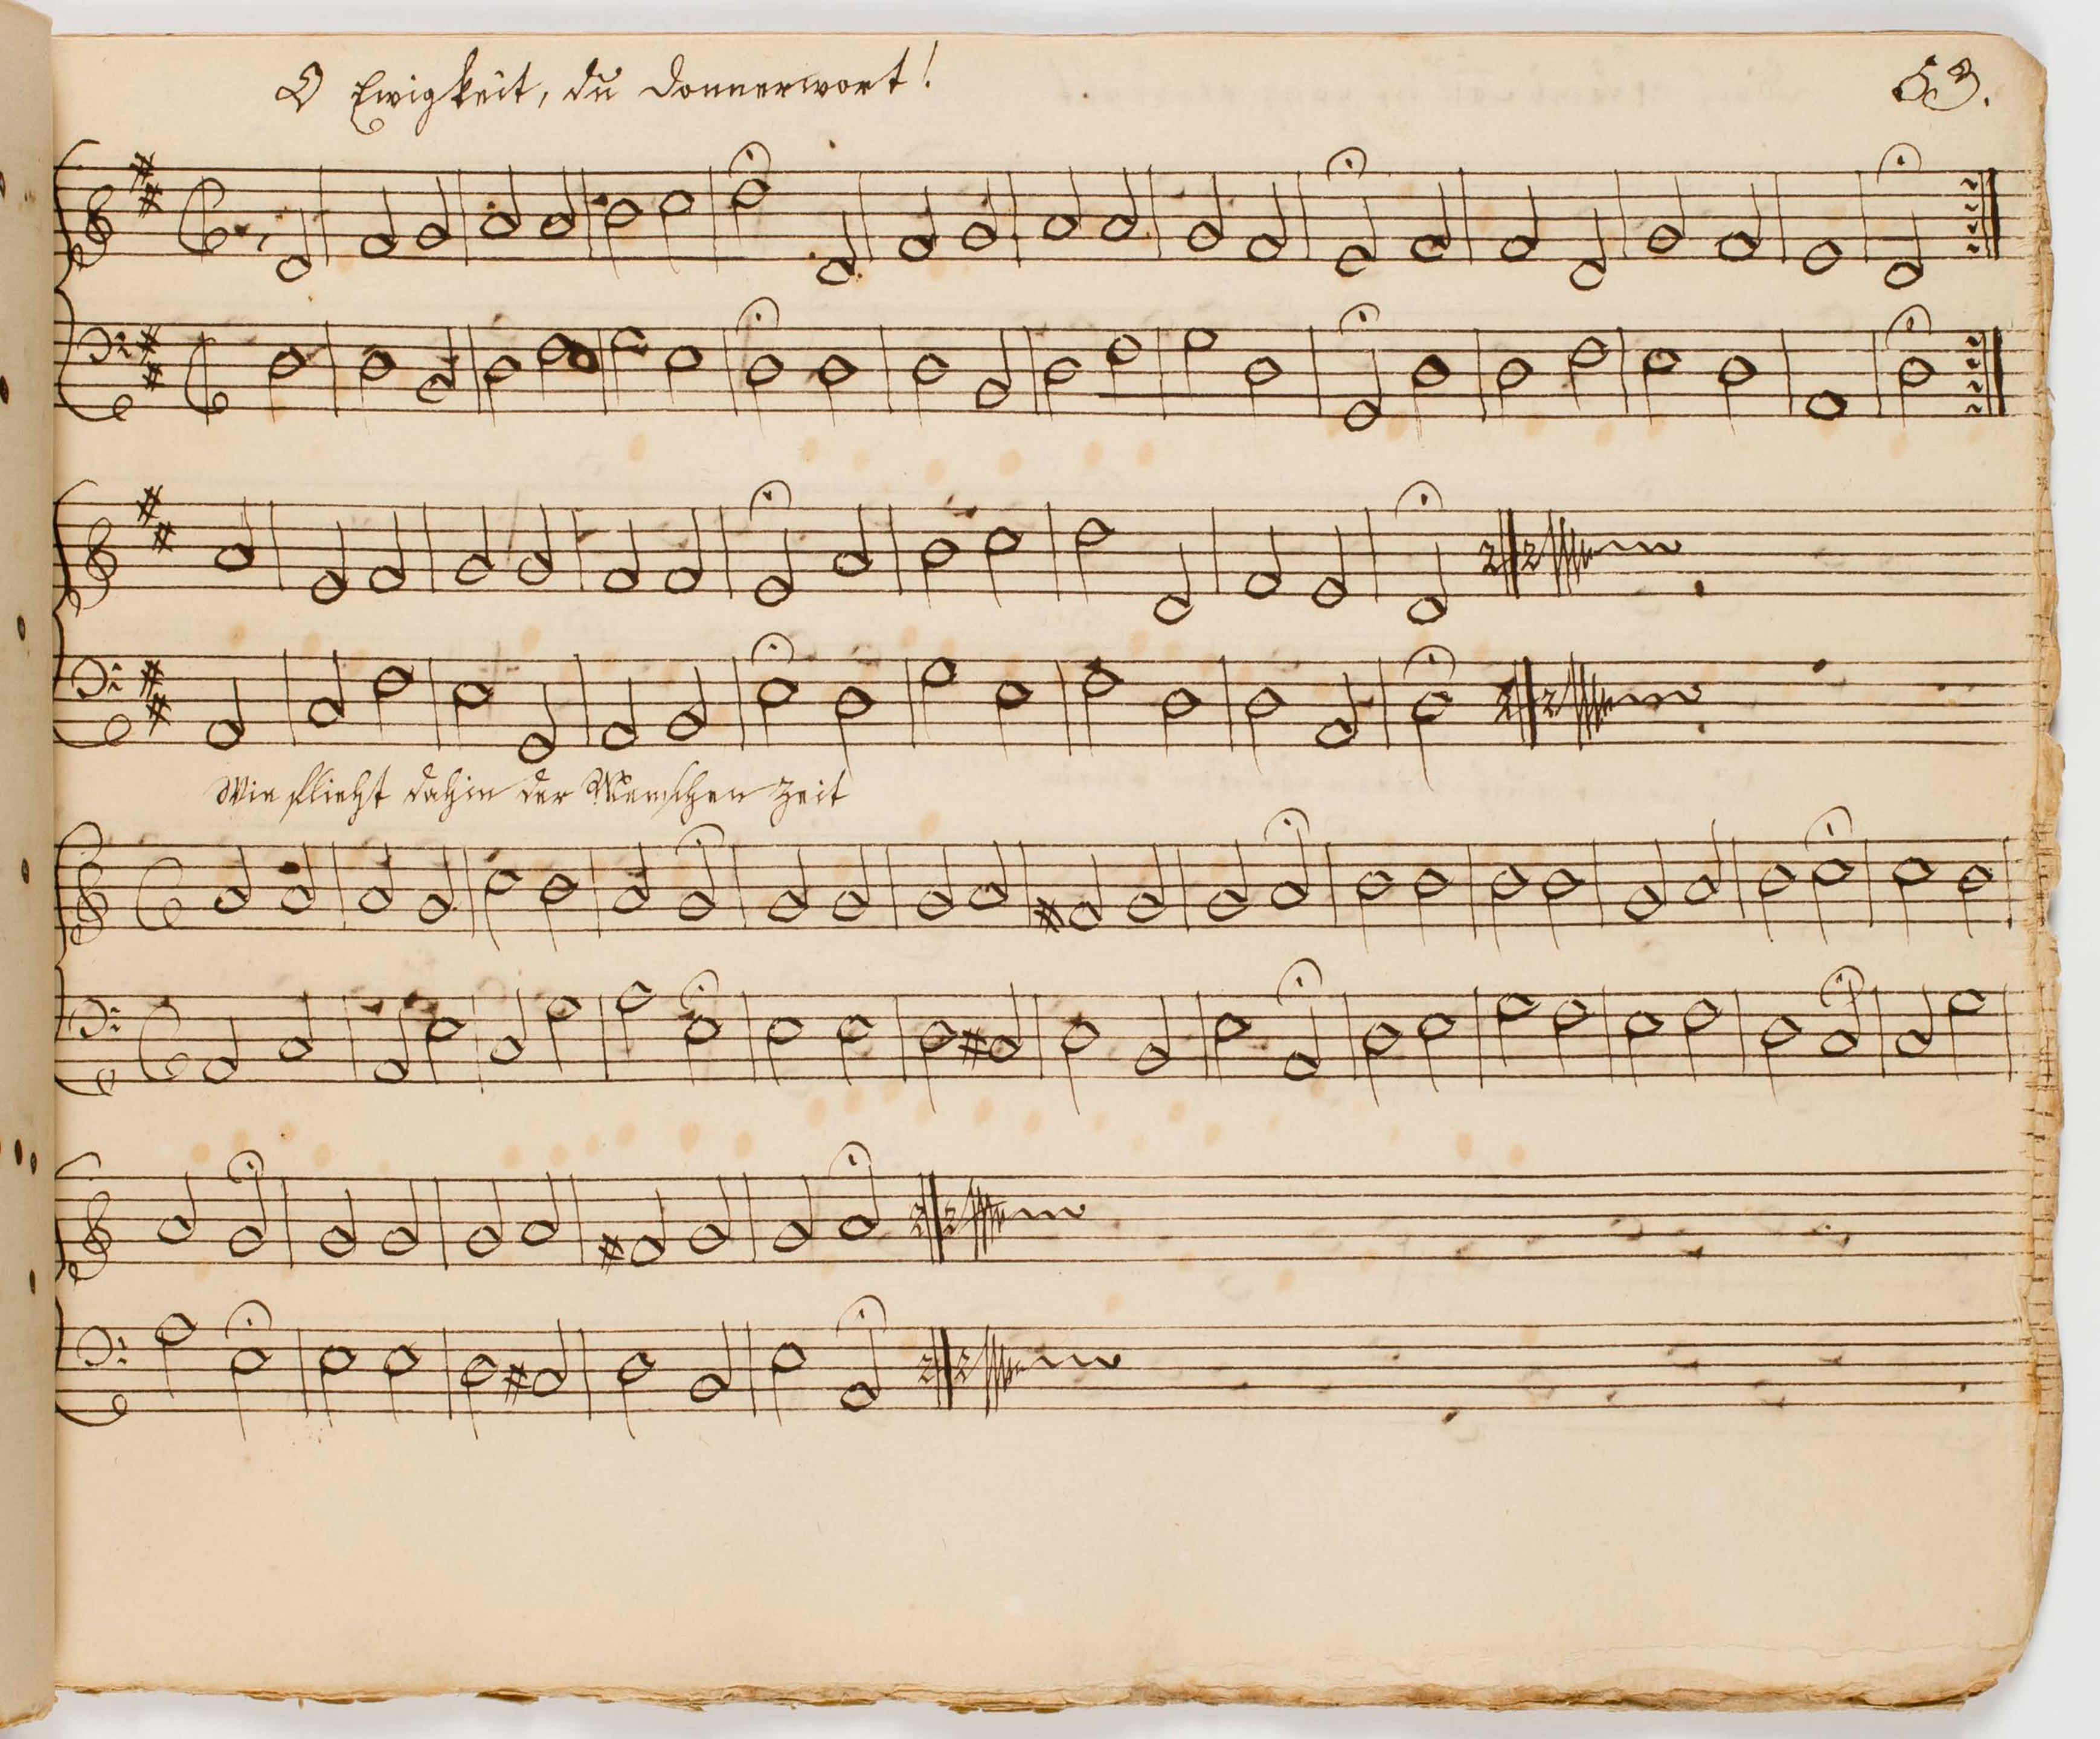 O Ewigkeit, du Donnerwort!
53.
Wie flieht dahin der Menschen Zeit